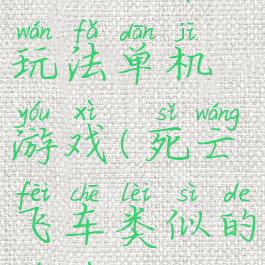 wán fǎ dān jī
玩法单机
yóu xì sǐ wáng
游戏(死亡
fēi chē lèi sì de
飞车类似的